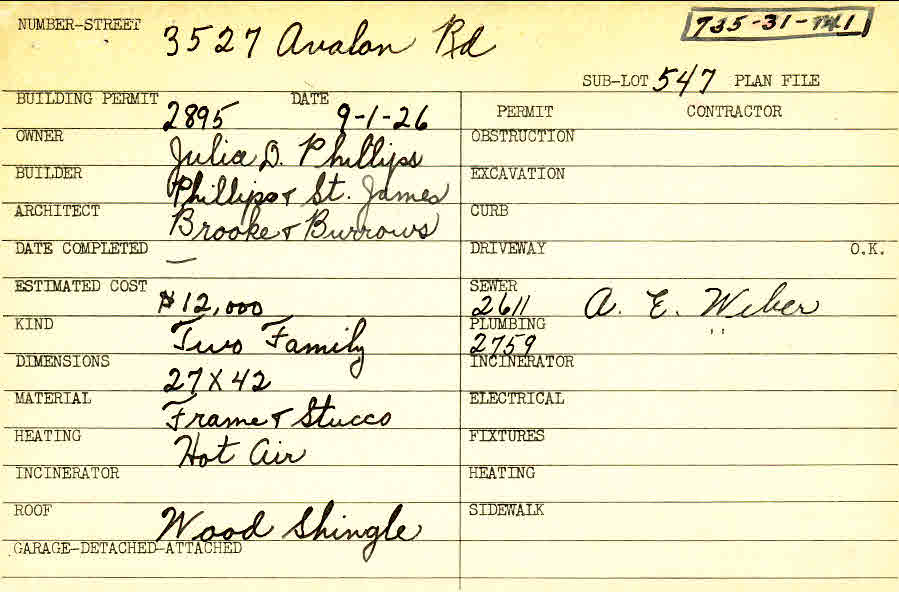 NUMBER-STREET 3527 Avalon Rd
SUB-LOT 547 PLAN FILE
BUILDING PERMIT 2895 DATE 9-1-26
OWNER Julia D. Phillips
BUILDER Phillips & St. James
ARCHITECT Brooke & Burrows
DATE COMPLETED —
ESTIMATED COST $12,000
KIND Two Family
DIMENSIONS 27 X 42
MATERIAL Frame & Stucco
HEATING Hot Air
INCINERATOR
ROOF Wood Shingle
GARAGE-DETACHED-ATTACHED
PERMIT CONTRACTOR
OBSTRUCTION
EXCAVATION
CURB
DRIVEWAY O.K.
SEWER 2611 A. E. Weber
PLUMBING 2759 "
INCINERATOR
ELECTRICAL
FIXTURES
HEATING
SIDEWALK